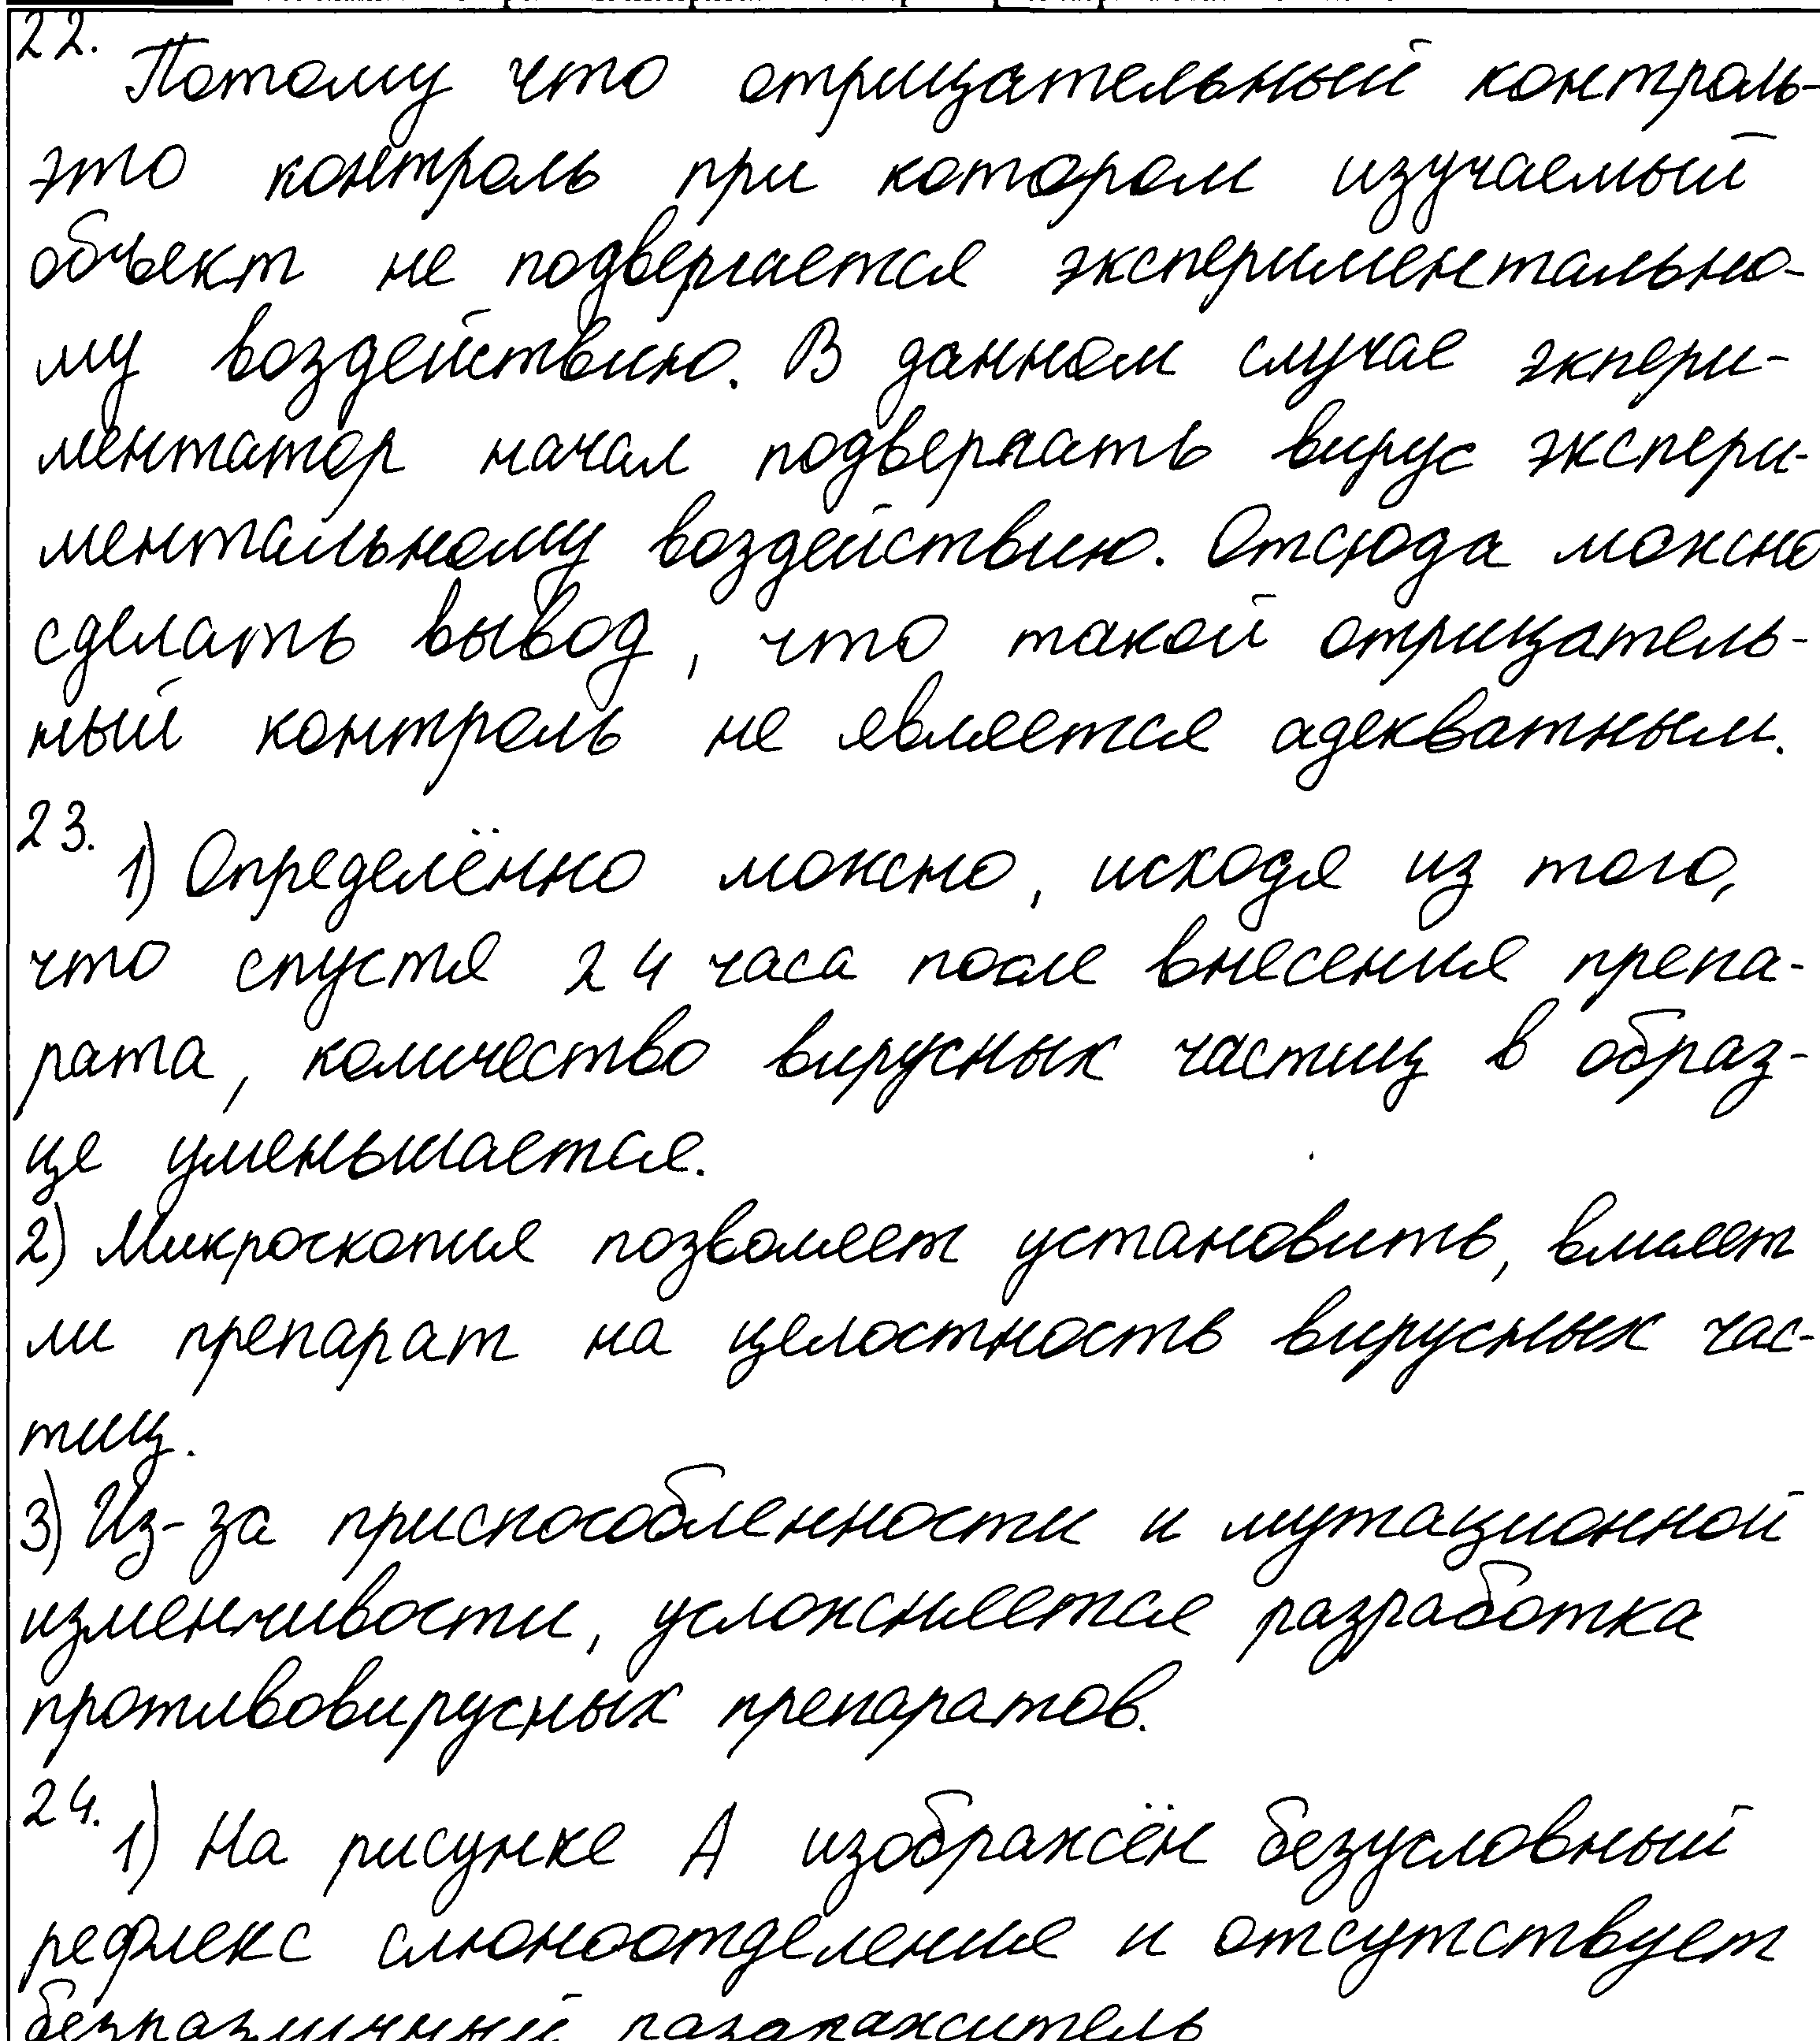 22.
Потому что отрицательный контроль-
это контроль при котором изучаемый
объект не подвергается экспериментально-
му воздействию. В данном случае экпери-
ментатор начал подвергать вирус экспери-
ментальному воздействию. Отсюда можно
сделать вывод, что такой отрицатель-
ный контроль не является адекватным.
23.
1) Определённо можно, исходя из того,
что спустя 24 часа после внесения препа-
рата, количество вирусных частиц в образ-
це уменьшается.
2) Микроскопия позволяет установить, влияет
ли препарат на целостность вирусных час-
тиц.
3) Из-за приспособленности и мутационной
изменчивости, усложняется разработка
противовирусных препаратов.
24.
1) На рисунке А изображён безусловный
рефлекс слюноотделения и отсутствует
безразличный раздражитель